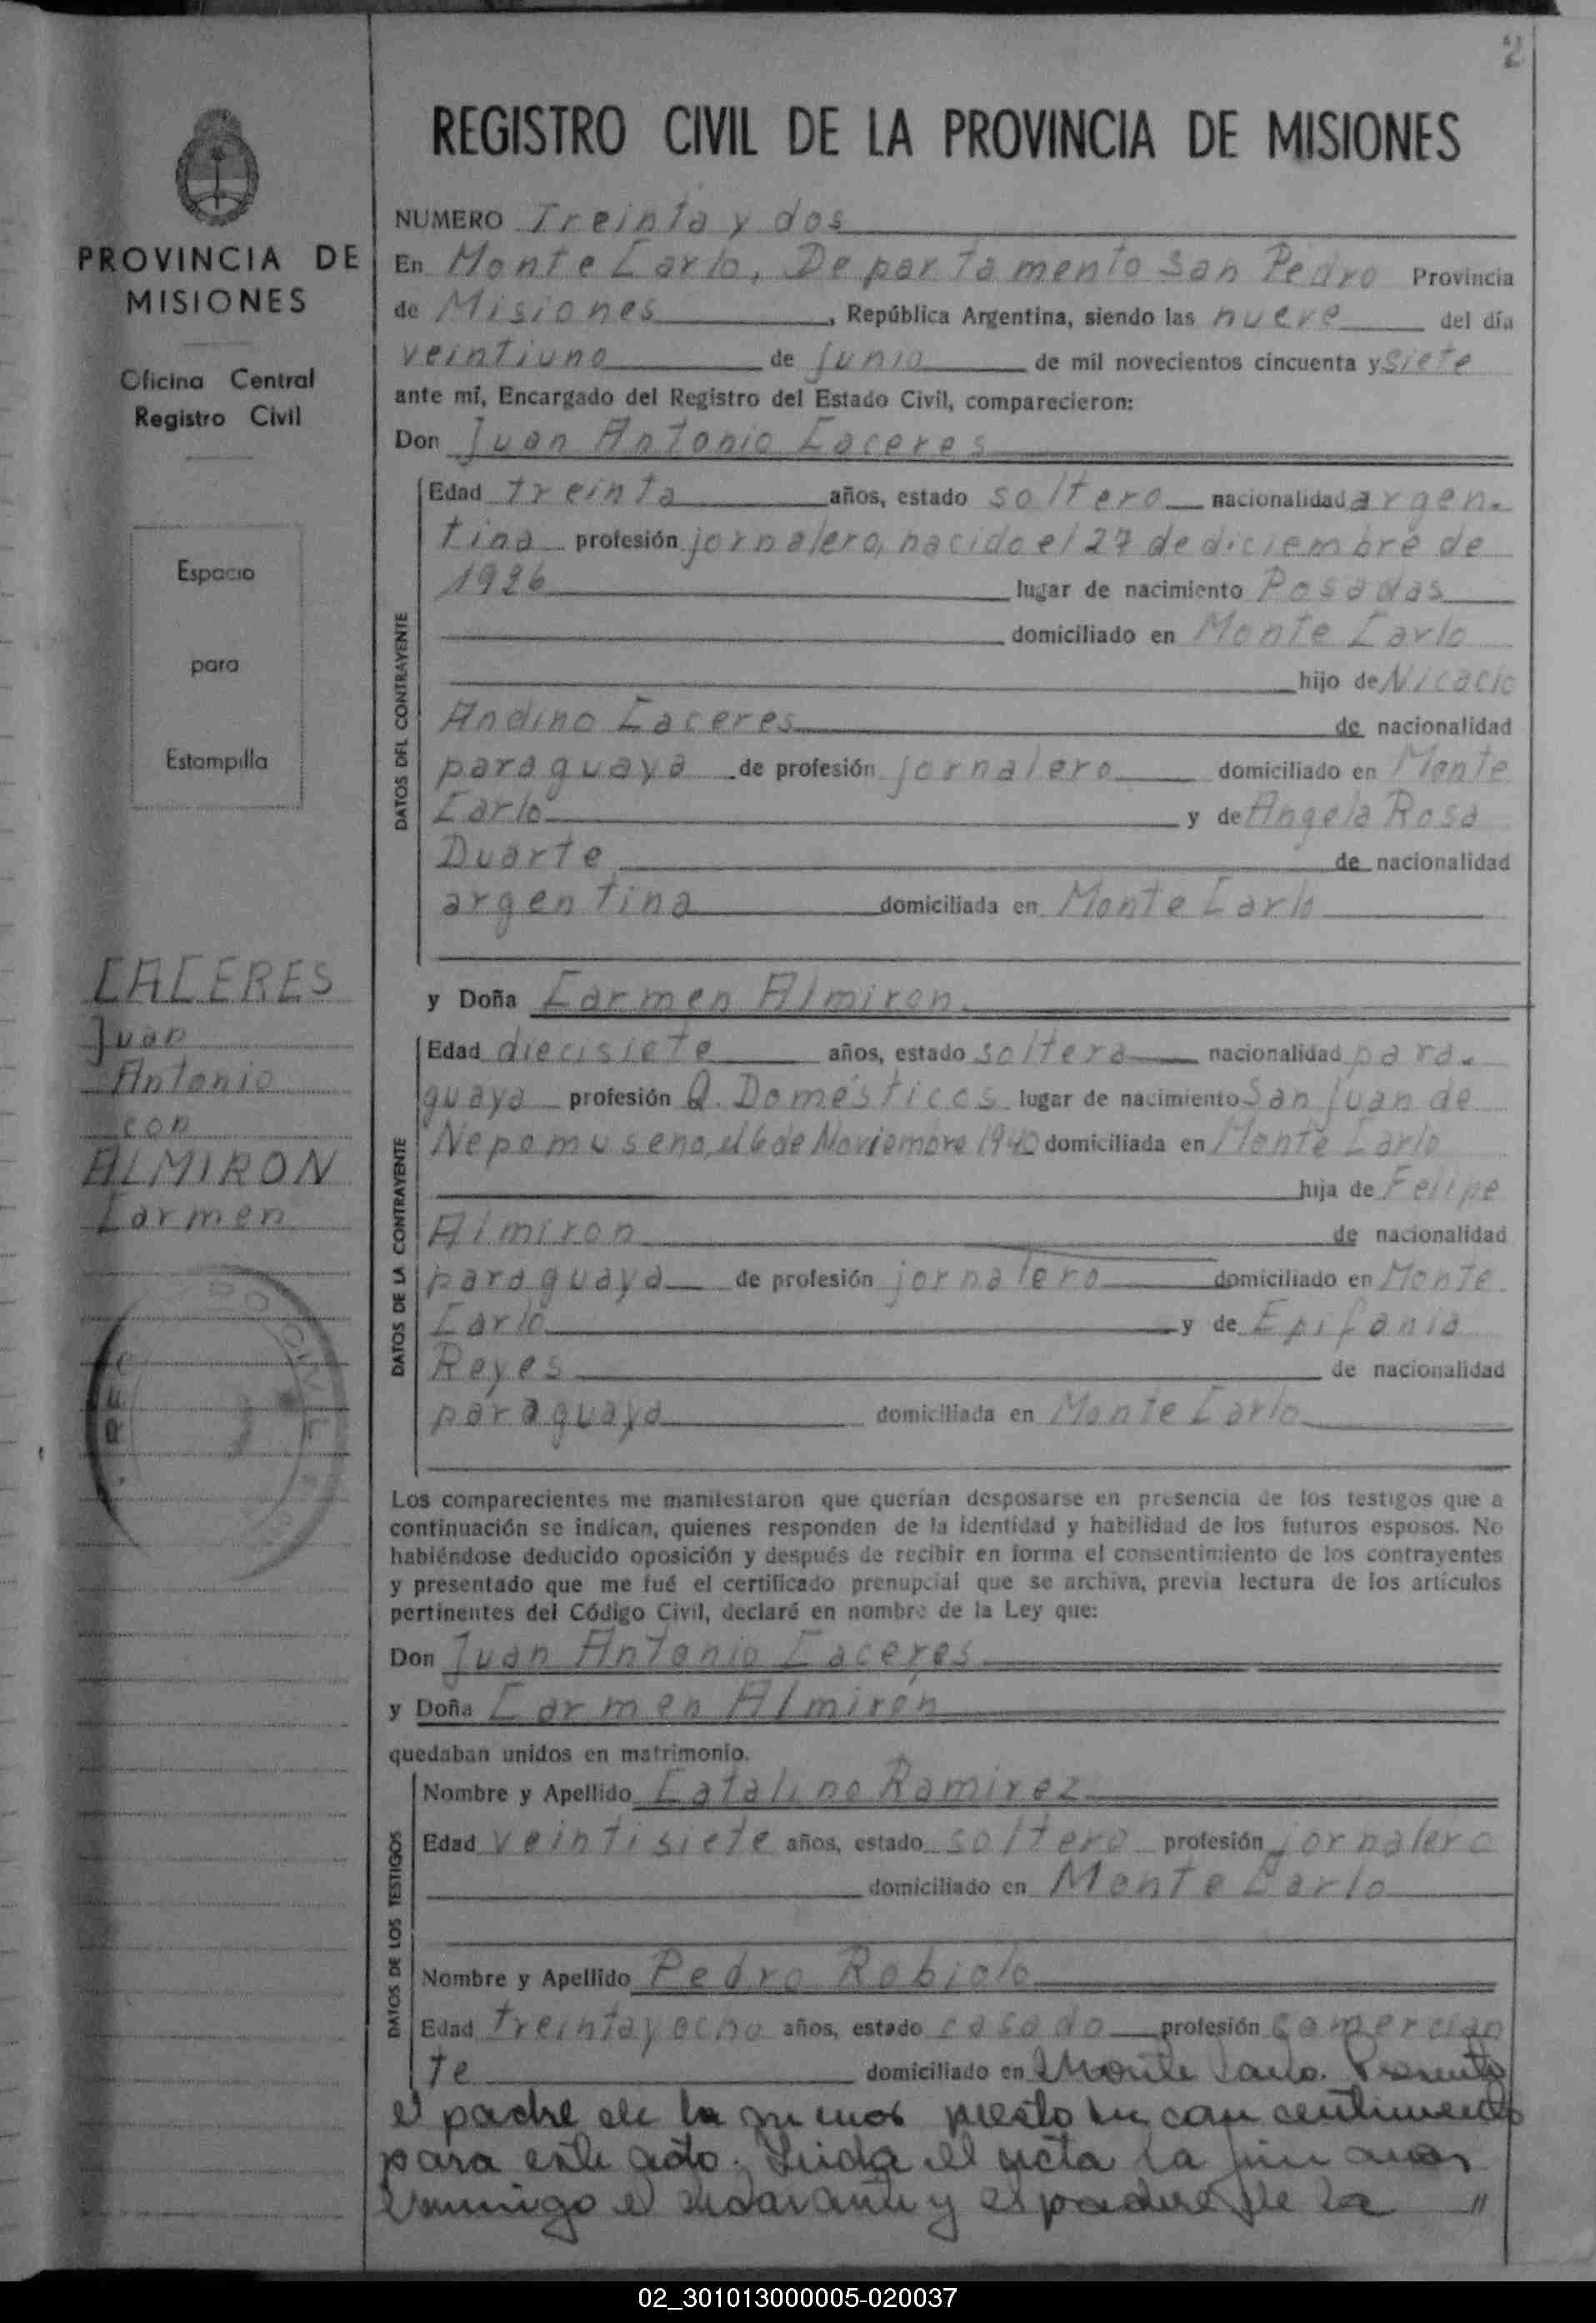 2
PROVINCIA DE
MISIONES
Oficina Central
Registro Civil
Espacio
para
Estampilla
CACERES
Juan
Antonio
con
ALMIRON
Carmen
REGISTRO CIVIL DE LA PROVINCIA DE MISIONES
NUMERO Treinta y dos
En Monte Carlo, Departamento San Pedro Provincia
de Misiones, República Argentina, siendo las nueve del día
veintiuno de junio de mil novecientos cincuenta y siete
ante mí, Encargado del Registro del Estado Civil, comparecieron:
Don Juan Antonio Caceres
DATOS DEL CONTRAYENTE
Edad treinta años, estado soltero nacionalidad argen-
tina profesión jornalero, nacido el 27 de diciembre de
1926 lugar de nacimiento Posadas
domiciliado en Monte Carlo
hijo de Nicacio
Andino Caceres de nacionalidad
paraguaya de profesión jornalero domiciliado en Monte
Carlo y de Angela Rosa
Duarte de nacionalidad
argentina domiciliada en Monte Carlo
y Doña Carmen Almiron
DATOS DE LA CONTRAYENTE
Edad diecisiete años, estado soltera nacionalidad para-
guaya profesión Q. Domésticos lugar de nacimiento San Juan de
Nepomuseno, el 6 de Noviembre 1940 domiciliada en Monte Carlo
hija de Felipe
Almiron de nacionalidad
paraguaya de profesión jornalero domiciliado en Monte
Carlo y de Epifania
Reyes de nacionalidad
paraguaya domiciliada en Monte Carlo
Los comparecientes me manifestaron que querían desposarse en presencia de los testigos que a
continuación se indican, quienes responden de la identidad y habilidad de los futuros esposos. No
habiéndose deducido oposición y después de recibir en forma el consentimiento de los contrayentes
y presentado que me fué el certificado prenupcial que se archiva, previa lectura de los artículos
pertinentes del Código Civil, declaré en nombre de la Ley que:
Don Juan Antonio Caceres
y Doña Carmen Almirón
quedaban unidos en matrimonio.
DATOS DE LOS TESTIGOS
Nombre y Apellido Catalino Ramirez
Edad veintisiete años, estado soltero profesión jornalero
domiciliado en Monte Carlo
Nombre y Apellido Pedro Robiolo
Edad treinta y ocho años, estado casado profesión comercian
te domiciliado en Monte Carlo. Presente
el padre de la menor presto su consentimiento
para este acto. Leida el acta la firmaron
conmigo el declarante y el padre de la "
02_301013000005-020037